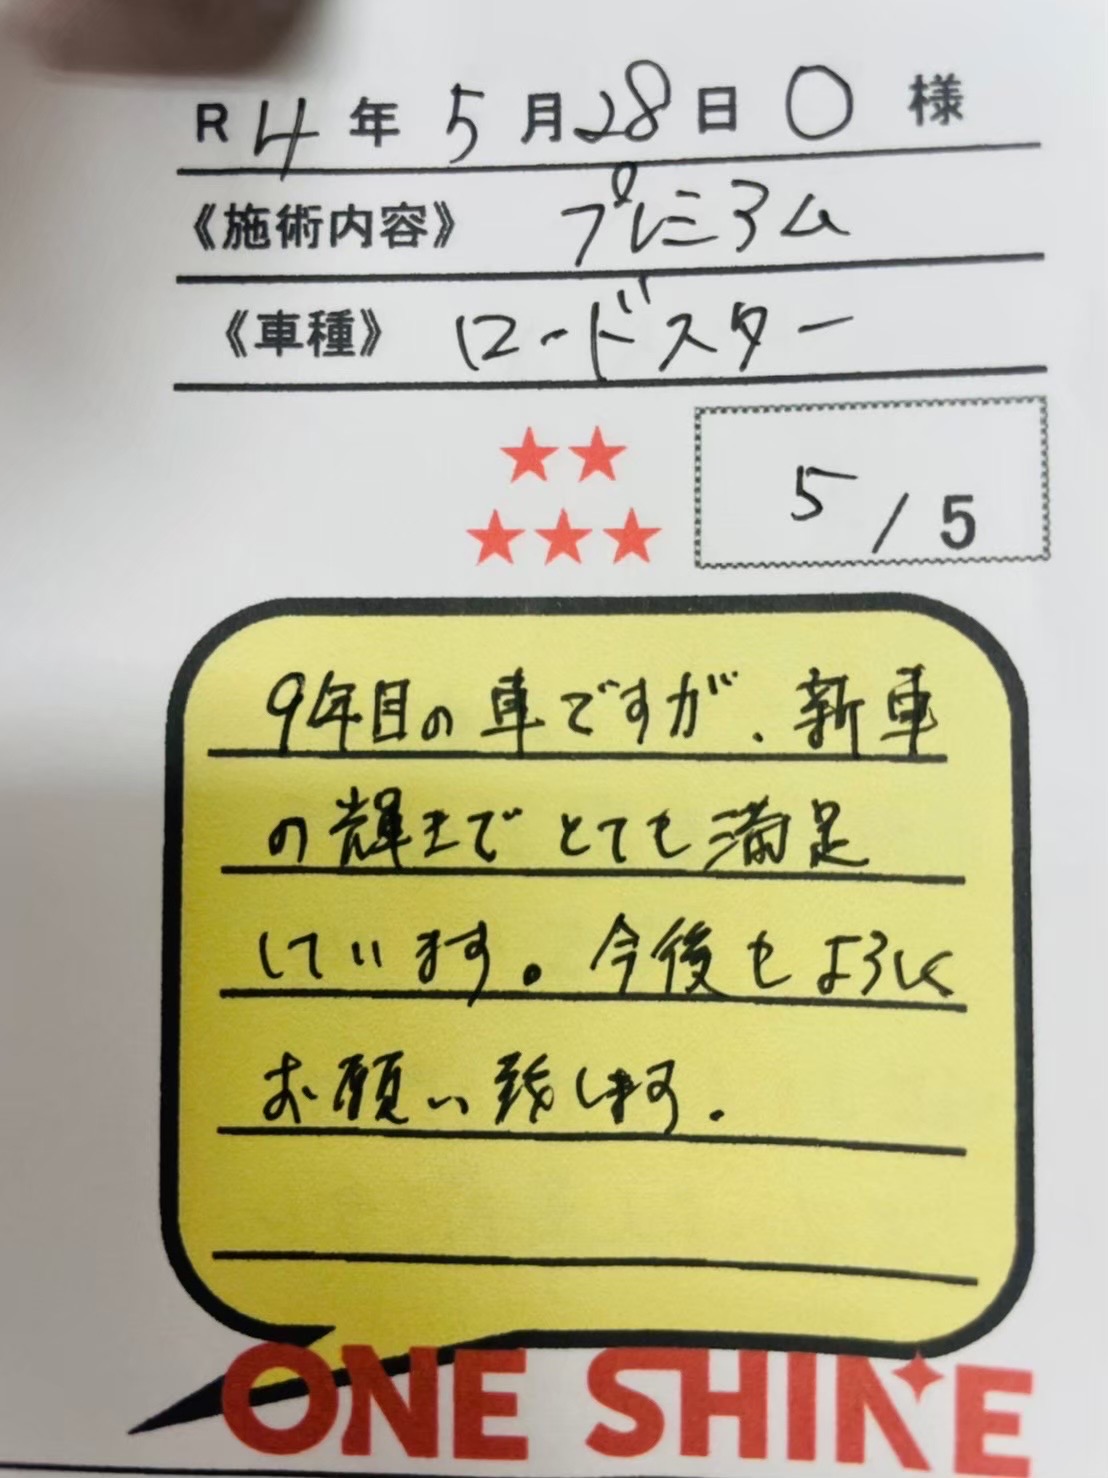 R 4 年 5 月 28 日 O 様
《施術内容》 プレミアム
《車種》 ロードスター
5 / 5
9年目の車ですが、新車
の輝きでとても満足
しています。今後もよろしく
お願い致します。
ONE SHINE